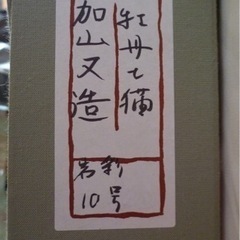 牡丹と猫
加山又造
岩彩
10号